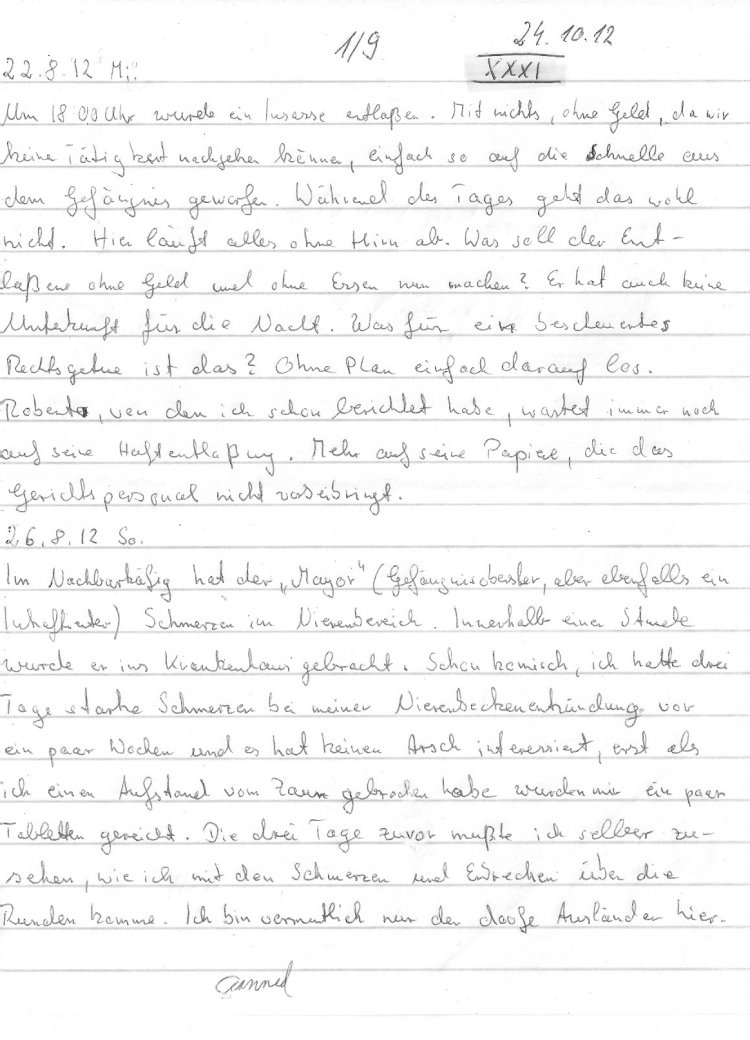 1/9
24.10.12
22.8.12 Mi.
XXXI
Um 18:00 Uhr wurde ein Insasse entlaßen. Mit nichts, ohne Geld, da wir
keine Tätigkeit nachgehen können, einfach so auf die Schnelle aus
dem Gefängnis geworfen. Während des Tages geht das wohl
nicht. Hier läuft alles ohne Hirn ab. Was soll der Ent-
laßene ohne Geld und ohne Essen nun machen? Er hat auch keine
Unterkunft für die Nacht. Was für ein bescheuertes
Rechtsgetue ist das? Ohne Plan einfach darauf los.
Roberto, von den ich schon berichtet habe, wartet immer noch
auf seine Haftentlaßung. Mehr auf seine Papiere, die das
Gerichtspersonal nicht vorbeibringt.
26.8.12 So.
Im Nachbarkäfig hat der „Mayor" (Gefängnisoberster, aber ebenfalls ein
Inhaftierter) Schmerzen im Nierenbereich. Innerhalb einer Stunde
wurde er ins Krankenhaus gebracht. Schon komisch, ich hatte drei
Tage starke Schmerzen bei meiner Nierenbeckenentzündung vor
ein paar Wochen und es hat keinen Arsch interessiert, erst als
ich einen Aufstand vom Zaun gebrochen habe wurden mir ein paar
Tabletten gereicht. Die drei Tage zuvor mußte ich selber zu-
sehen, wie ich mit den Schmerzen und Erbrechen über die
Runden komme. Ich bin vermutlich nur der doofe Ausländer hier.